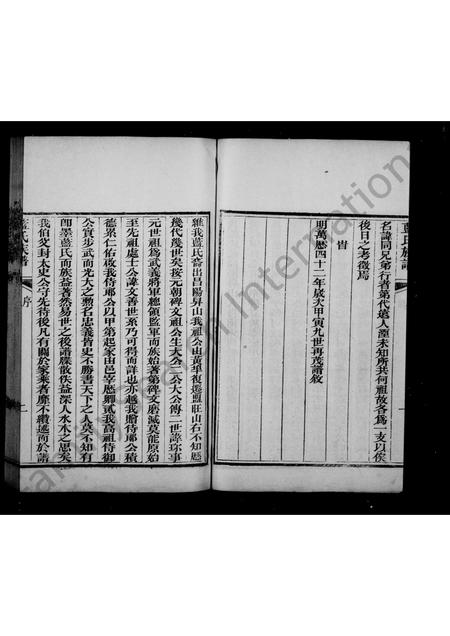 藍氏族譜
名諱同兄弟行者第代遠人湮未知所共何祖故各為一支以俟
後日之考徵焉
旹
明萬曆四十二年歲次甲寅九世再茂譜敘
維我藍氏裔出昌陽昇山我祖公山黃準復遷盟旺山右不知歷
幾代幾世矣按元朝碑文祖公生大公二公大公傳二世諱珎事
元世祖為武義將軍總領監軍而族始著第碑文磨滅莫能原始
至先祖處士公諱文善世系乃可得而詳也亦越我贈侍郎公積
德累仁佑啟我侍郎公以甲第起家由邑宰歷卿貳我高祖侍御
公實步武而光大之勲名忠義皆史不勝書天下之人莫不知有
即墨藍氏而族益著然易世之後譜牒散佚益深人水木之思矣
我伯父封太史公守先待後凡有關於家乘者靡不纘述而於譜
藍氏族譜 序 二
Tianjin International